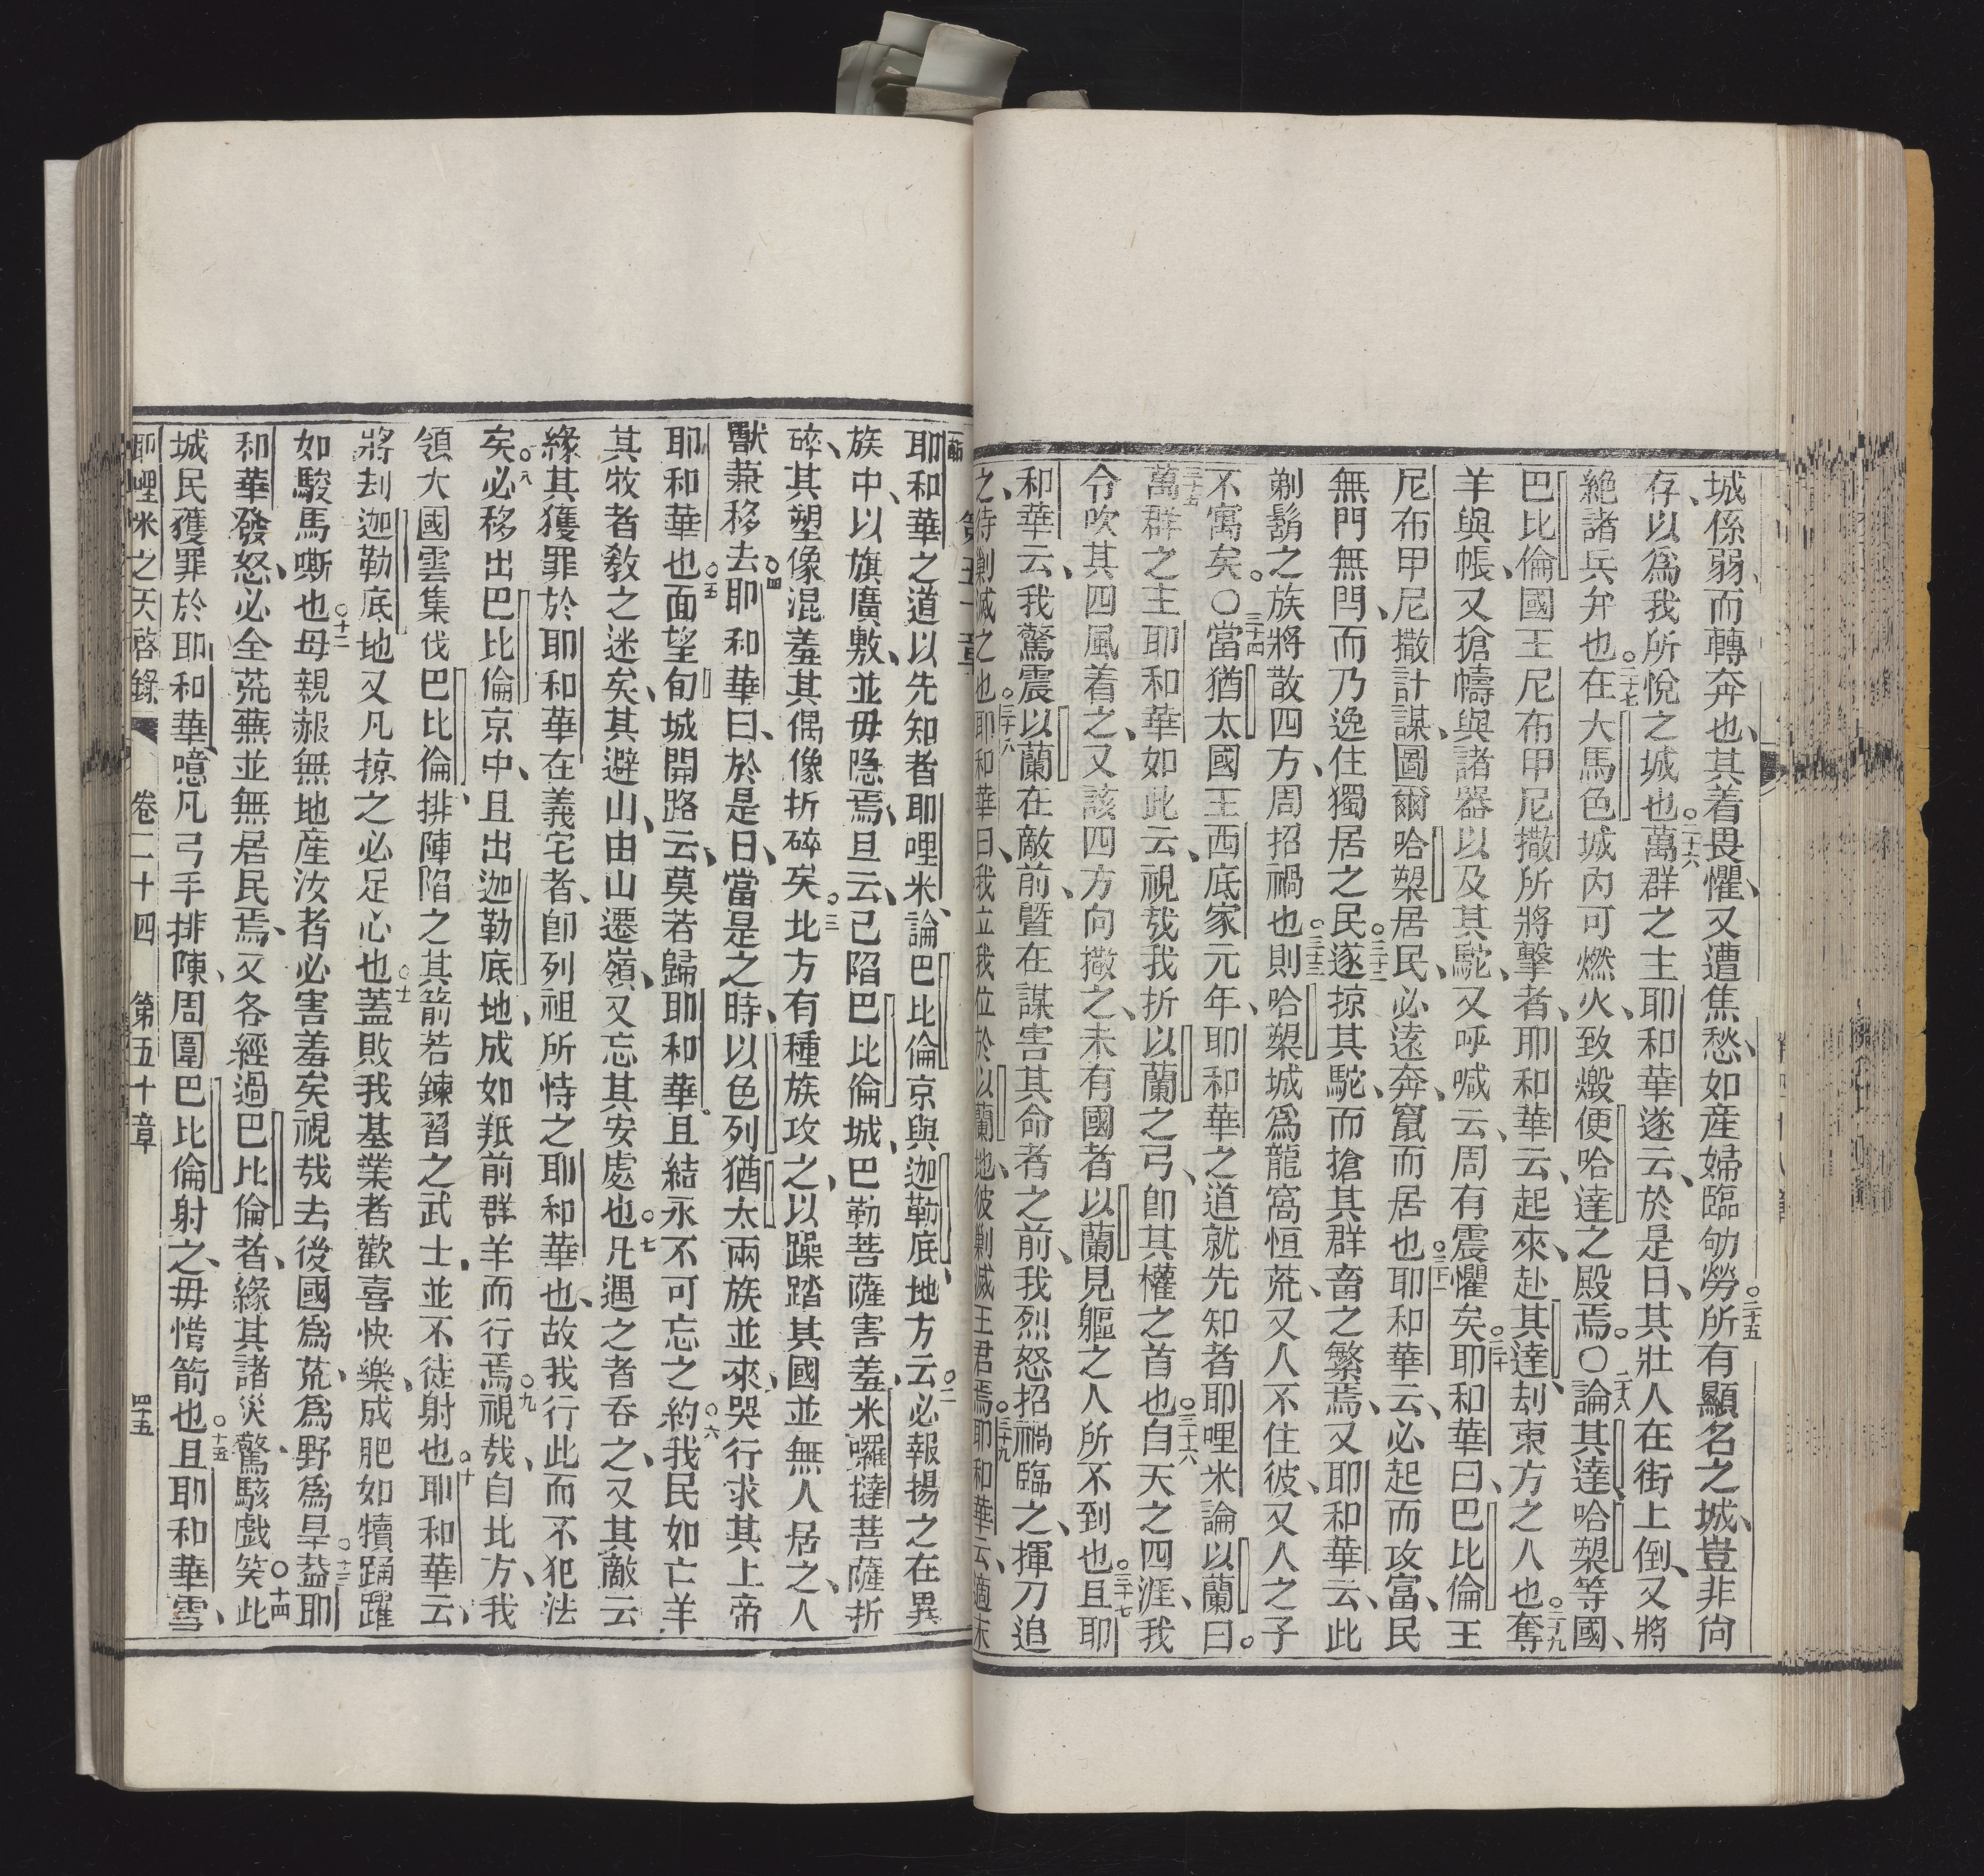 城係弱、而轉奔也、其着畏懼、又遭焦愁、如産婦臨劬勞。二十五所有顯名之城、豈非尙
存、以爲我所悅之城也。二十六萬群之主耶和華遂云、於是日、其壯人在街上倒、又將
絶諸兵弁也。二十七在大馬色城內可燃火、致燬便哈達之殿焉。〇二十八論其達、哈槼等國、
巴比倫國王尼布甲尼撒所將擊者、耶和華云、起來、赴其達、刦東方之人也。二十九奪
羊與帳、又搶幬與諸器以及其駝、又呼喊云、周有震懼矣。三十耶和華曰、巴比倫王
尼布甲尼撒計謀、圖爾哈槼居民、必遠奔、竄而居也。三十一耶和華云、必起而攻富、民
無門無閂、而乃逸住獨居之民。三十二遂掠其駝、而搶其群畜之繁焉、又耶和華云、此
剃鬍之族將散四方、周招禍也。三十三則哈槼城爲龍窩恒荒、又人不住彼、又人之子
不寓矣。〇三十四當猶太國王西底家元年、耶和華之道就先知者耶哩米論以蘭曰。
三十五萬群之主耶和華如此云、視哉我折以蘭之弓、卽其權之首也。三十六自天之四涯、我
令吹其四風着之、又該四方向撒之、未有國者以蘭見軀之人所不到也。三十七且耶
和華云、我驚震以蘭在敵前、曁在謀害其命者之前、我烈怒招禍臨之、揮刀追
之、待剿滅之也。三十八耶和華曰、我立我位於以蘭地、彼剿滅王君焉。三十九耶和華云、適末
第五十章
耶和華之道以先知者耶哩米、論巴比倫京與迦勒底地方云。二必報揚之在異
族中、以旗廣敷、並毋隱焉、且云、已陷巴比倫城、巴勒菩薩害羞、米囉撻菩薩折
碎、其塑像混羞、其偶像折碎矣。三北方有種族攻之、以躁踏其國、並無人居之、人
獸兼移去。四耶和華曰、於是日、當是之時、以色列猶太兩族並來、哭行求其上帝
耶和華也。五面望旬城開路云、莫若歸耶和華、且結永不可忘之約。六我民如亡羊
其牧者教之迷矣、其避山、由山遷嶺、又忘其安處也。七凡遇之者吞之、又其敵云
緣其獲罪於耶和華在義宅者、卽列祖所恃之耶和華也、故我行此而不犯法
矣。八必移出巴比倫京中、且出迦勒底地、成如羝前群羊而行焉。九視哉、自北方、我
領大國雲集伐巴比倫、排陣陷之、其箭若鍊習之武士、並不徒射也。十耶和華云、
將刦迦勒底地、又凡掠之必足心也。十一蓋敗我基業者歡喜快樂、成肥如犢踊躍
如駿馬嘶也。十二母親赧無地、産汝者必害羞矣、視哉去後國爲荒、爲野爲旱。十三蓋耶
和華發怒、必全荒蕪並無居民焉、又各經過巴比倫者、緣其諸災、驚駭戲笑。十四此
城民獲罪於耶和華、噫凡弓手排陳、周圍巴比倫射之、毋惜箭也。十五且耶和華雪、
耶哩米之天啓錄 卷二十四 第五十章 四十五